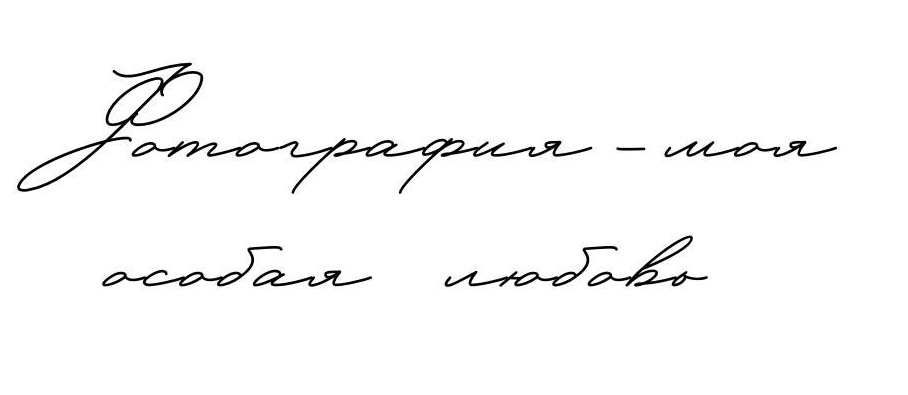 Фотография - моя
особая любовь